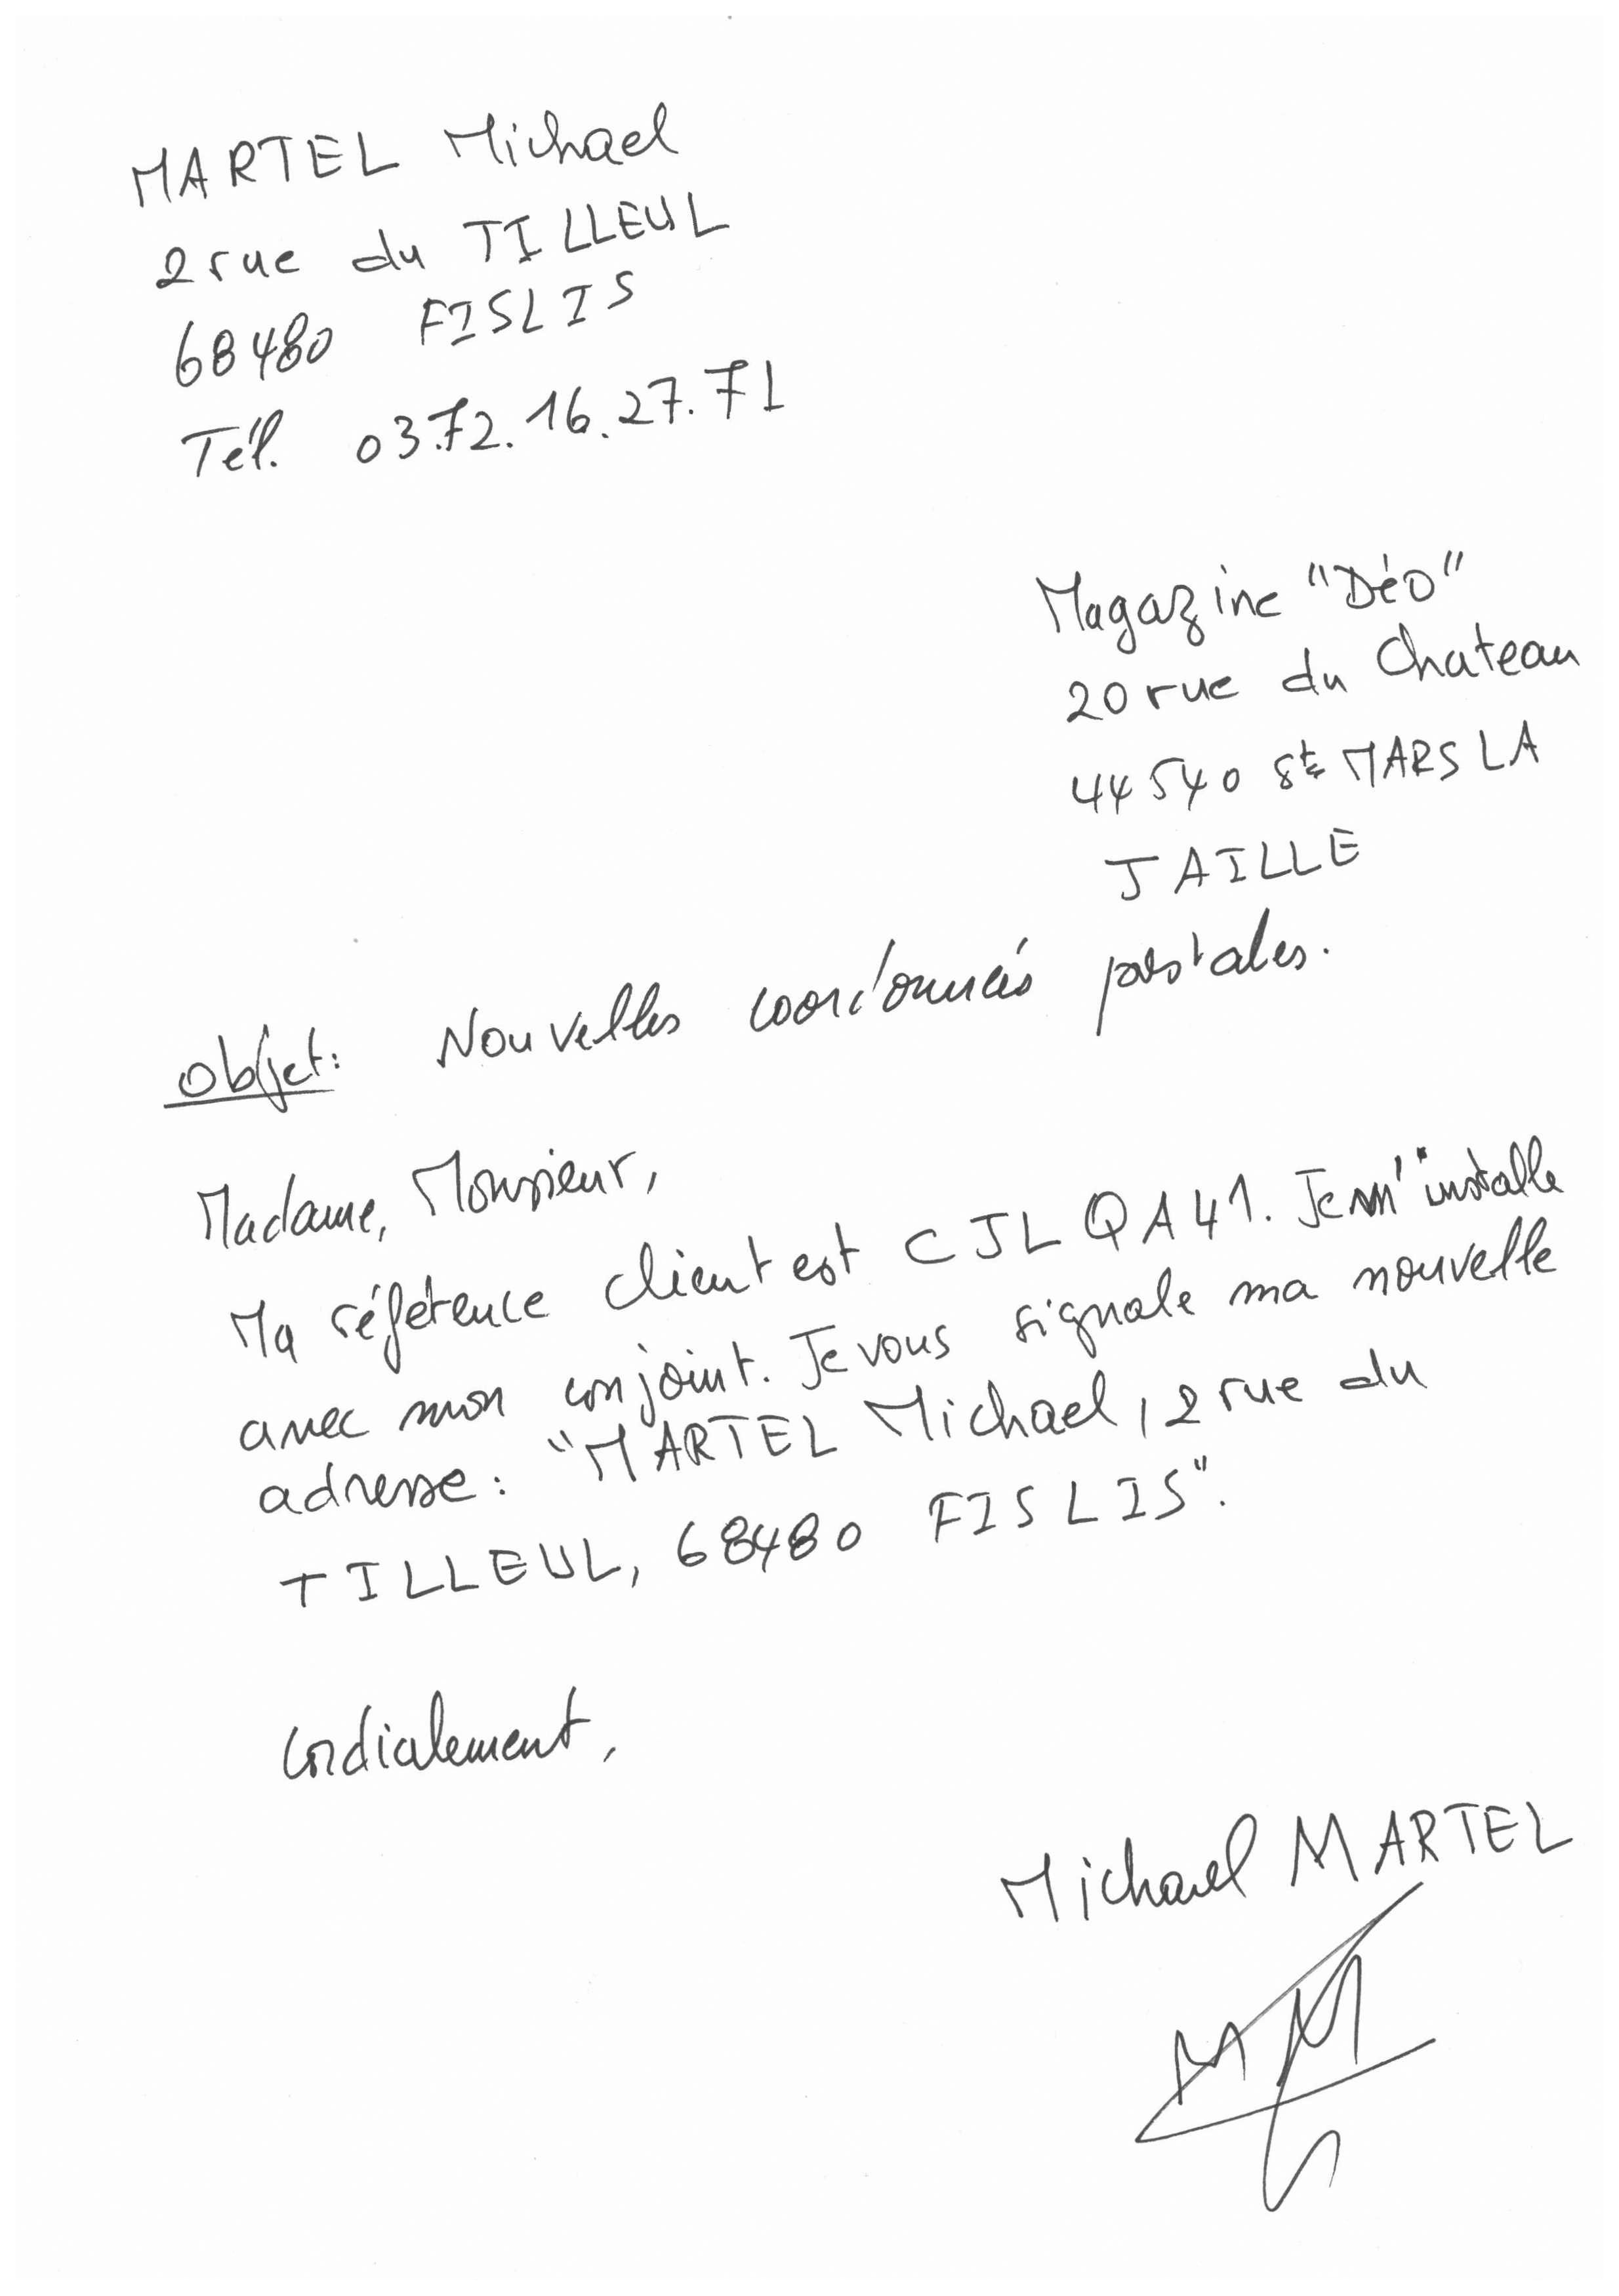 MARTEL Michael
2 rue du TILLEUL
68480 FISLIS
Tél. 03.72.16.27.71
Magazine "Déo"
20 rue du Chateau
44540 St MARS LA
JAILLE
Objet: Nouvelles coordonnées postales.
Madame, Monsieur,
Ma référence client est CJLQA41. Je m'installe
avec mon conjoint. Je vous signale ma nouvelle
adresse: "MARTEL Michael, 2 rue du
TILLEUL, 68480 FISLIS".
Cordialement,
Michael MARTEL
MM